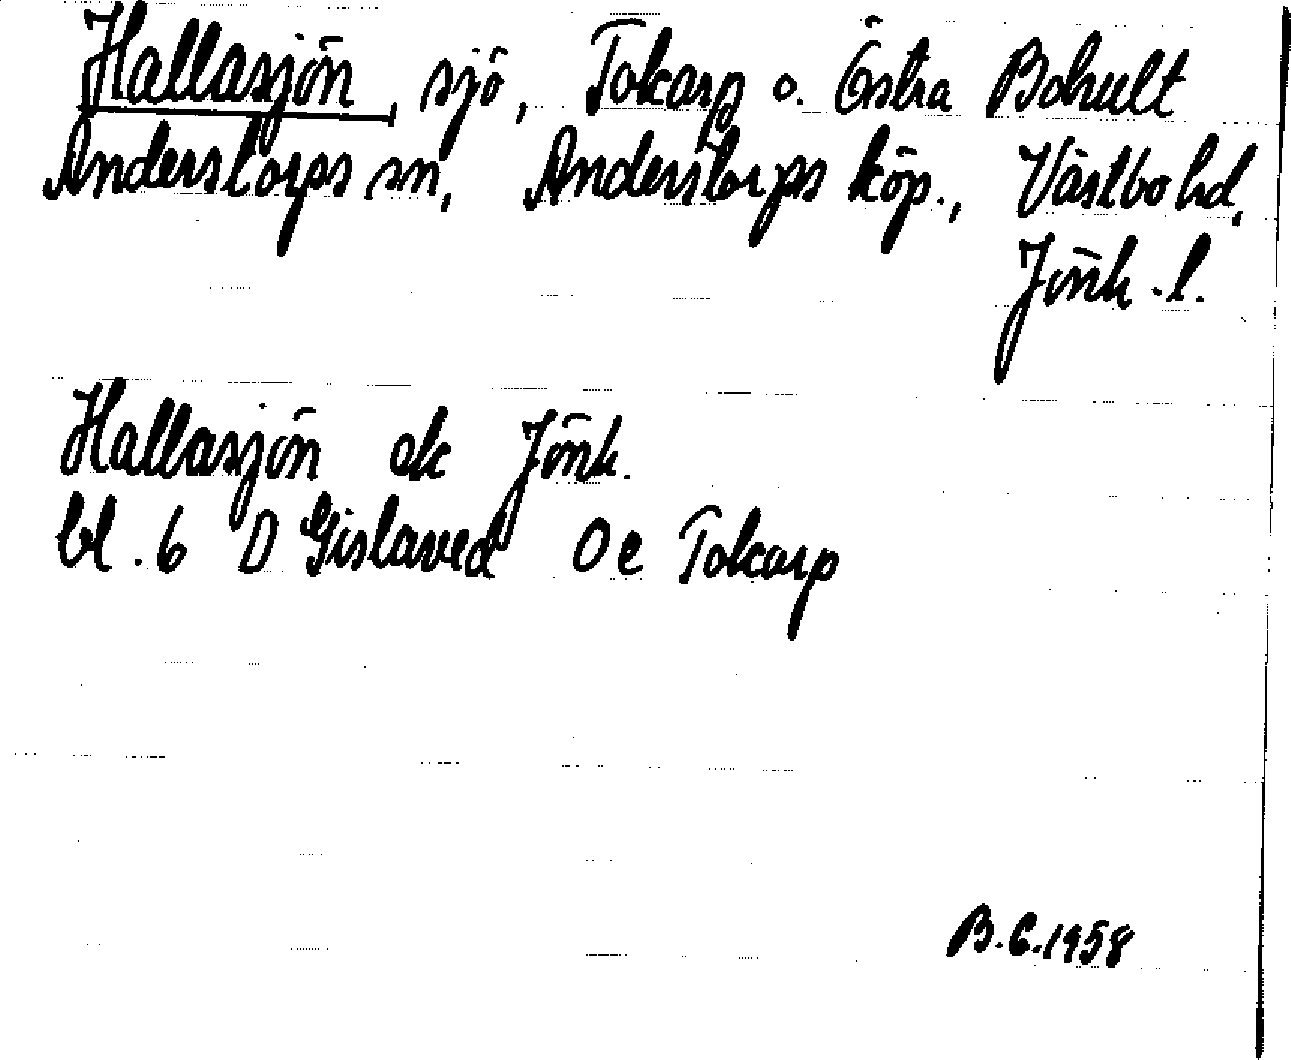 Hallasjön, sjö, Tokarp o. Östra Bohult
Anderstorps sn, Anderstorps köp., Västbo hd,
Jönk.l.
Hallasjön ek Jönk.
bl. 6 D Gislaved 0 e Tokarp
B.G.1958